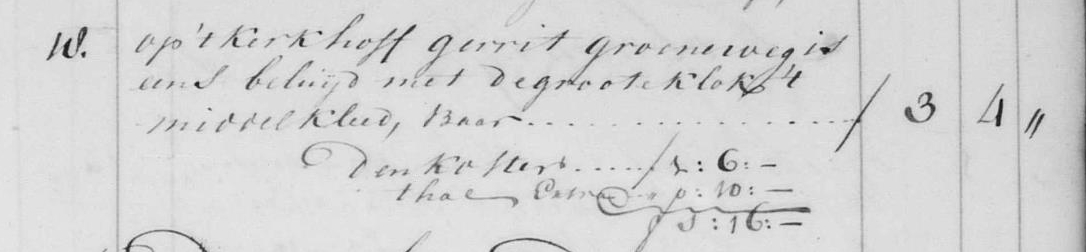 18. op't kerkhoff gerrit groeneweg is
eens beluijd met de groote klok, 't
middelkleed, Baar ............ / 3 4 "
Den koster ..... / 2 : 6 : -
10 : -
3 : 16 : -